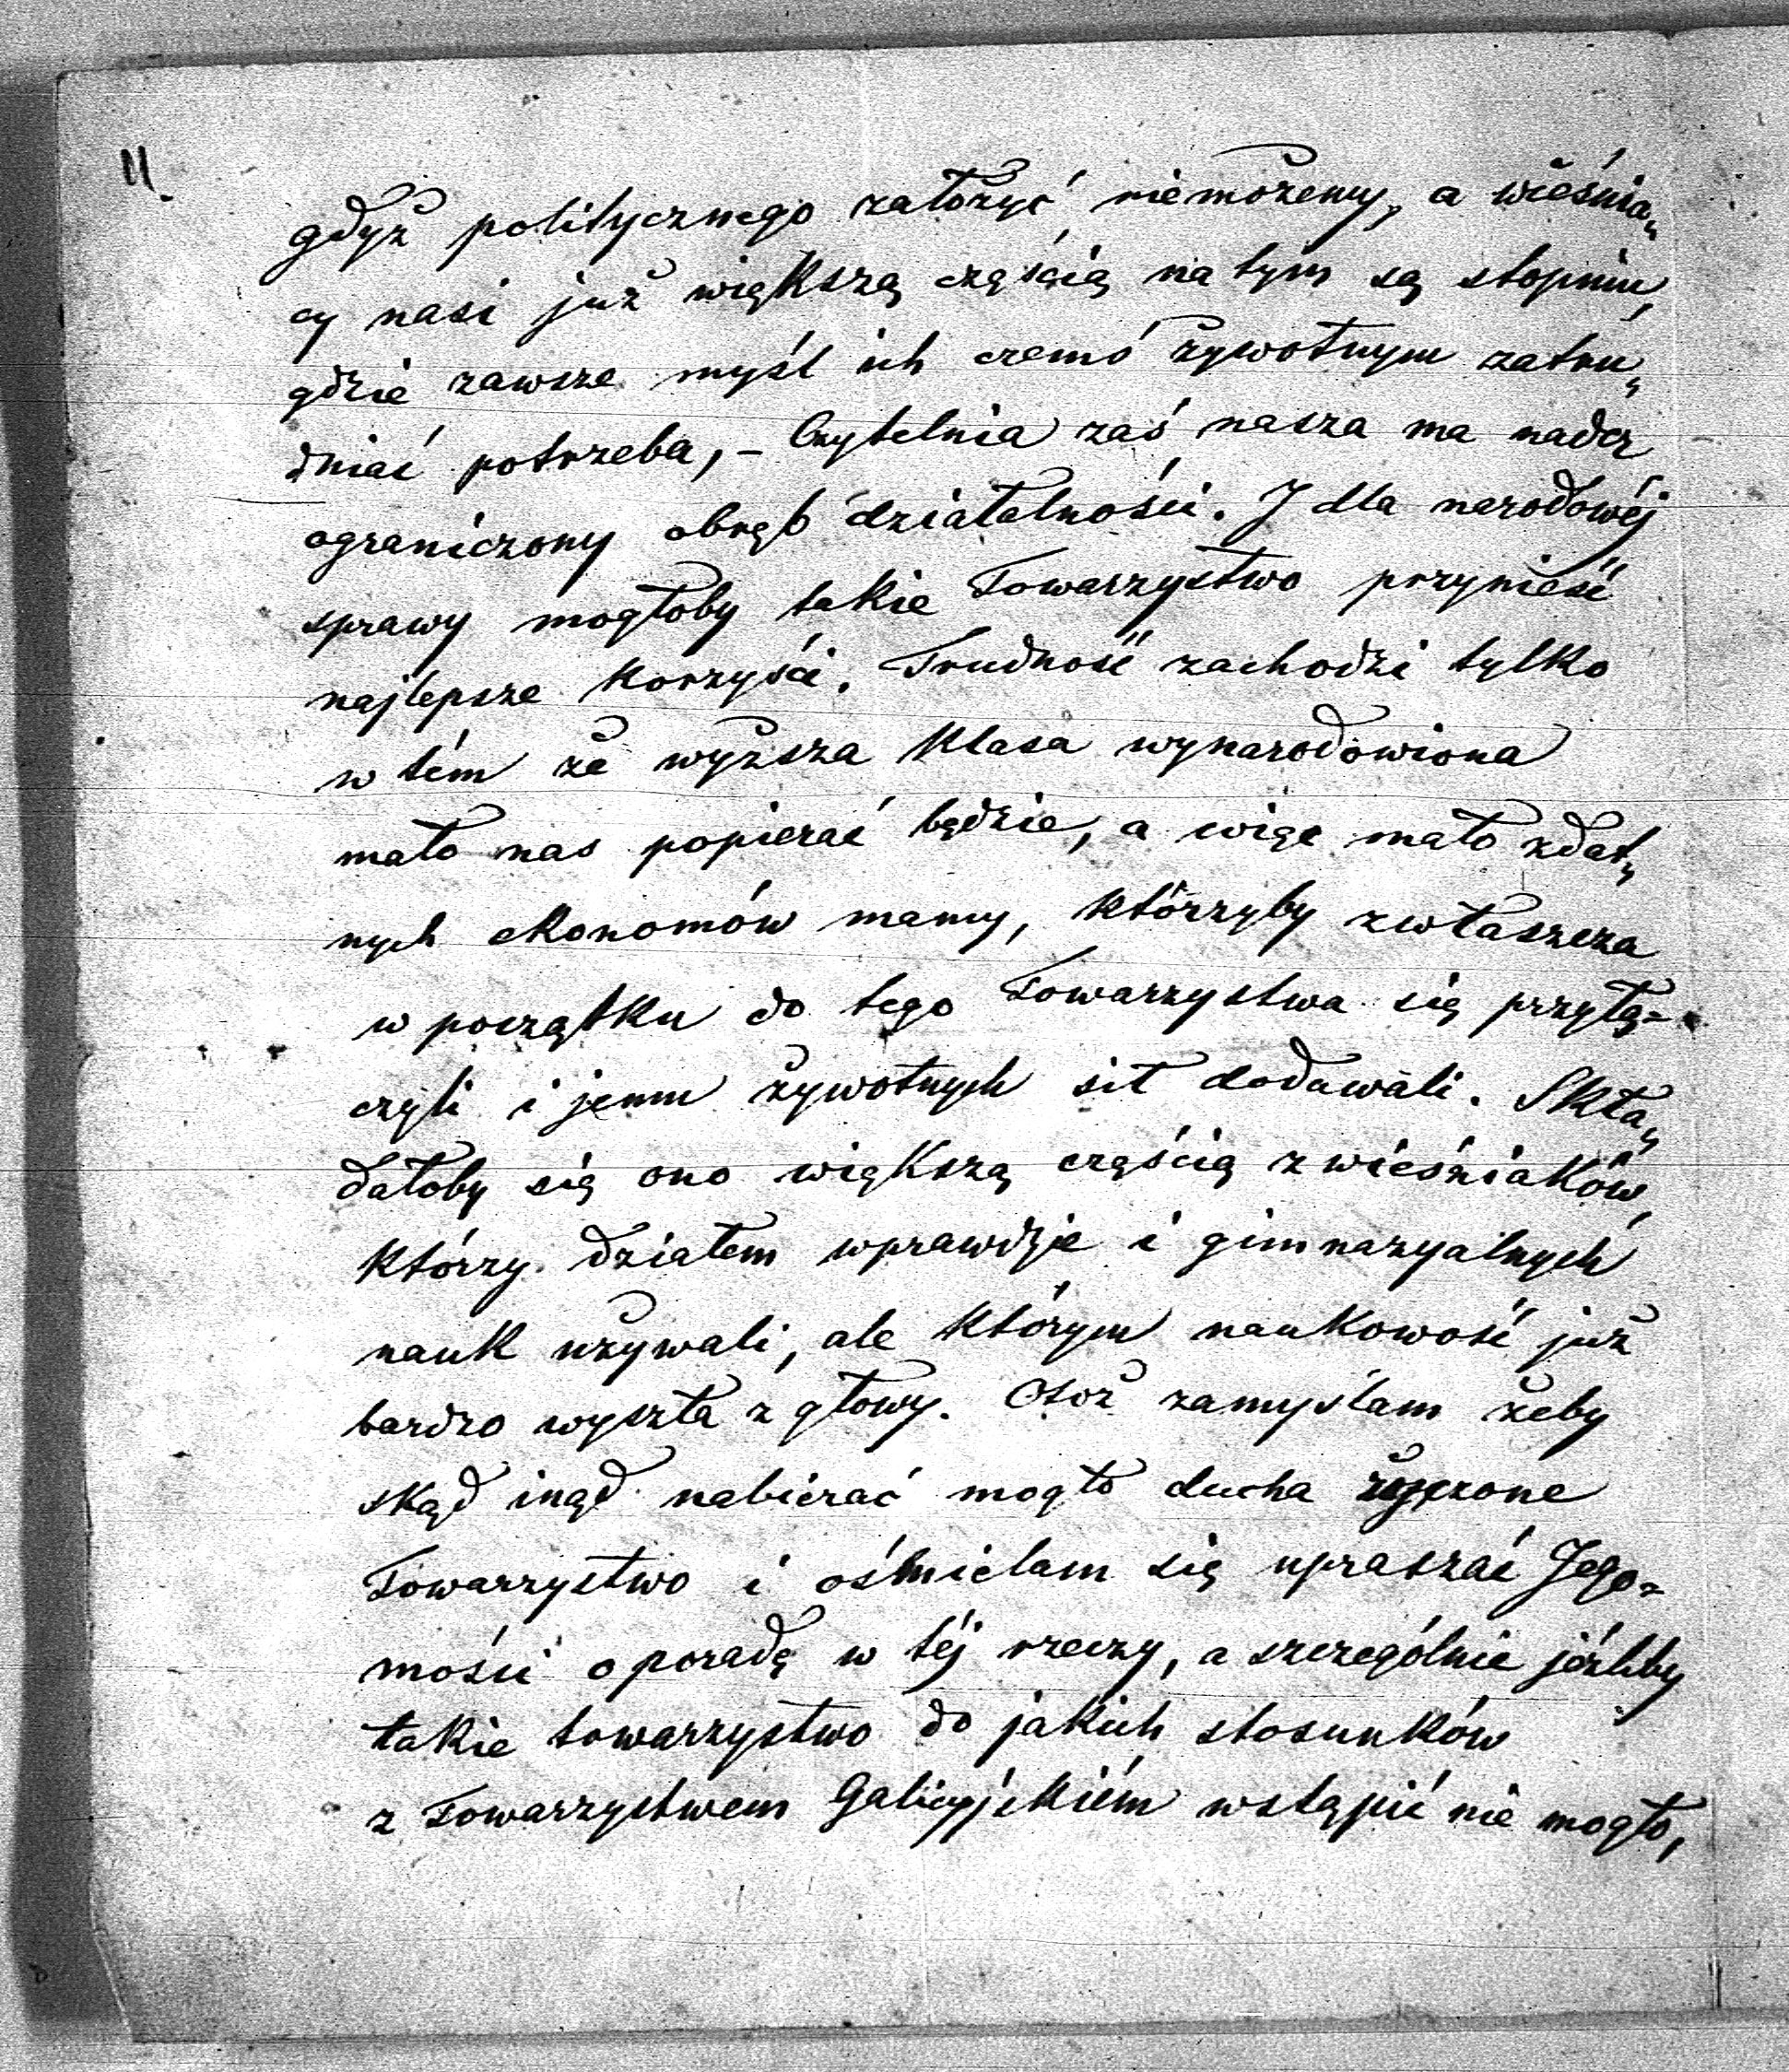 11.
gdyż politycznego założyć niemożemy, a wieśnia„
cy nasi już większą częścią na tym są stopniu,
gdzie zawsze myśl ich czemś żywotnym zatru„
dniać potrzeba, – Czytelnia zaś nasza ma nader
ograniczony obręb działalności. I dla narodowéj
sprawy mogłoby takie Towarzystwo przynieść
najlepsze korzyści. Trudność zachodzi tylko
w tém że wyższa klasa wynarodowiona
mało nas popierać będzie, a więc mało zdat„
nych ekonomów mamy, którzyby zwłaszcza
w początku do tego Towarzystwa się przyłą-
czyli i jemu żywotnych sił dodawali. Skła„
dałoby się ono większą częścią z wieśniaków,
którzy działem wprawdzie i gimnazyalnych
nauk używali, ale którym naukowość już
bardzo wyszła z głowy. Otóż zamyślam żeby
skąd inąd nabierać mogło ducha rzeczone
Towarzystwo i ośmielam się upraszać Jego-
mości o poradę w téj rzeczy, a szczególnie jéźliby
takie towarzystwo do jakich stosunków
z Towarzystwem Galicyjskiém wstąpić nie mogło,